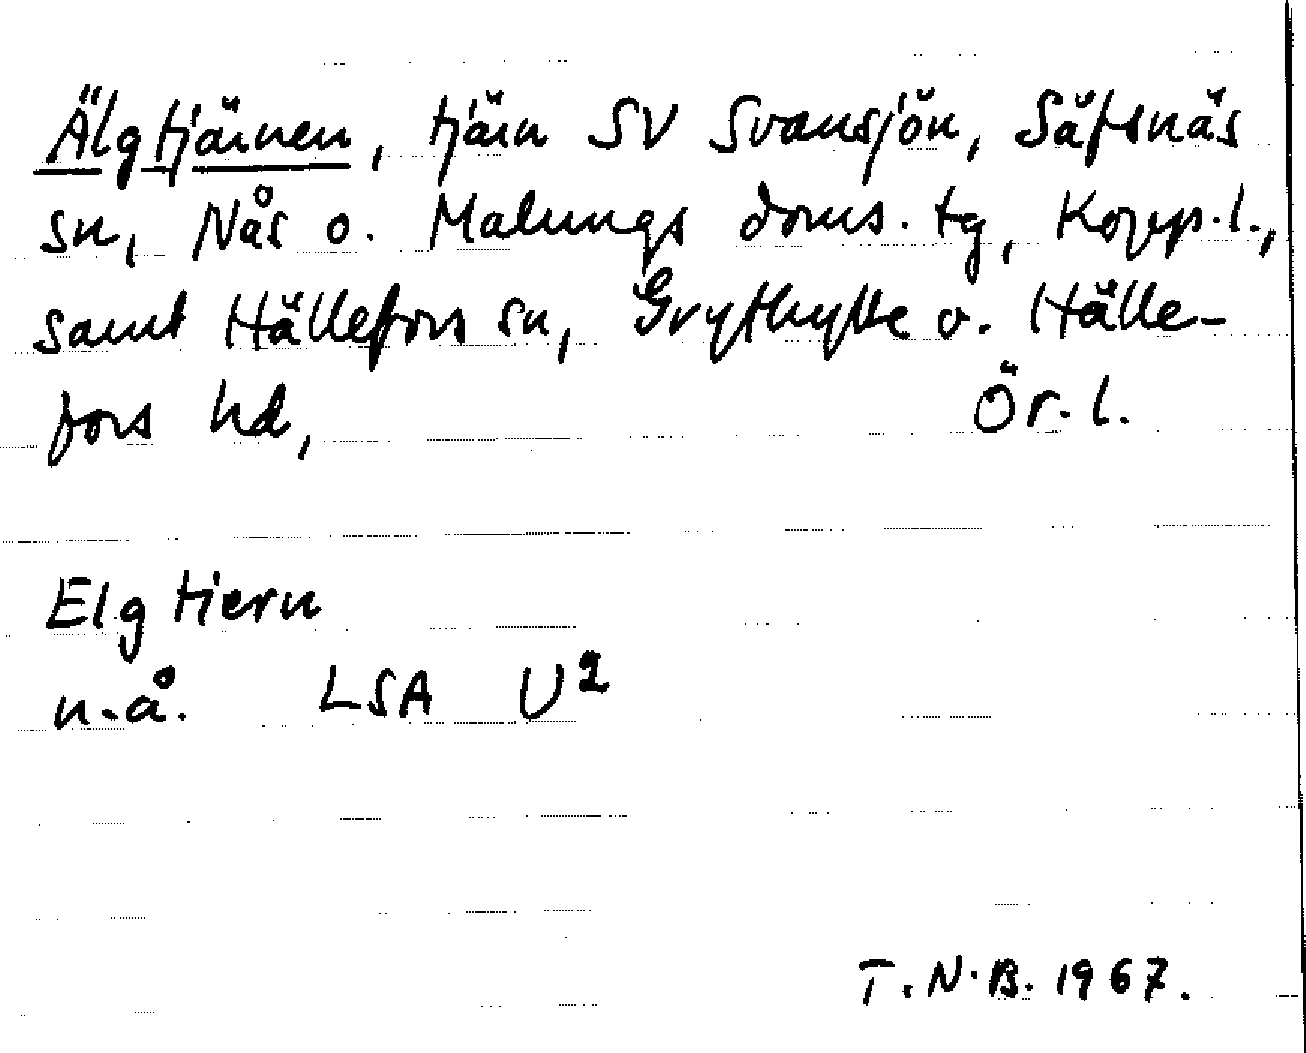 Älgtjärnen, tjärn SV Svansjön, Säfsnäs
sn, Nås o. Malungs doms. tg, Kopp.l.,
samt Hällefors sn, Grythytte o. Hälle-
fors hd, Ör. l.
Elg tiern
n.å. LSA U²
T.N.B. 1967.